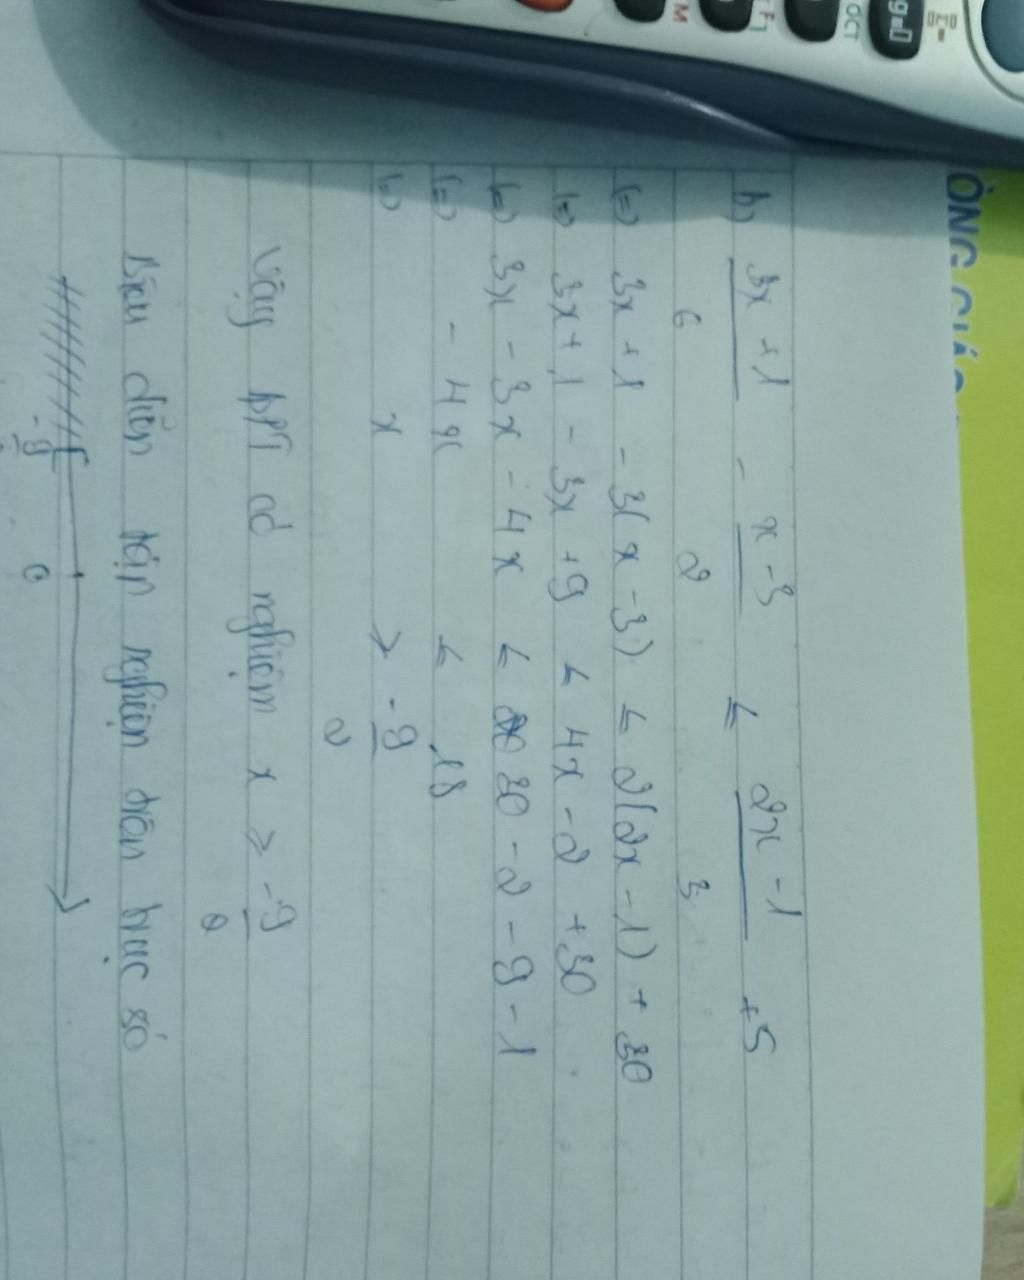 b) 3x + 1 / 6 - x - 3 / 2 ≤ 2x - 1 / 3 + 5
(=) 3x + 1 - 3(x - 3) ≤ 2(2x - 1) + 30
(=) 3x + 1 - 3x + 9 ≤ 4x - 2 + 30
(=) 3x - 3x - 4x ≤ 30 - 2 - 9 - 1
(=) - 4x ≤ 18
(=) x ≥ -9 / 2
Vậy BPT có nghiệm x ≥ -9 / 2
Biểu diễn tập nghiệm trên trục số
-9 0
ÒNG GIÁC
M
F
OCT